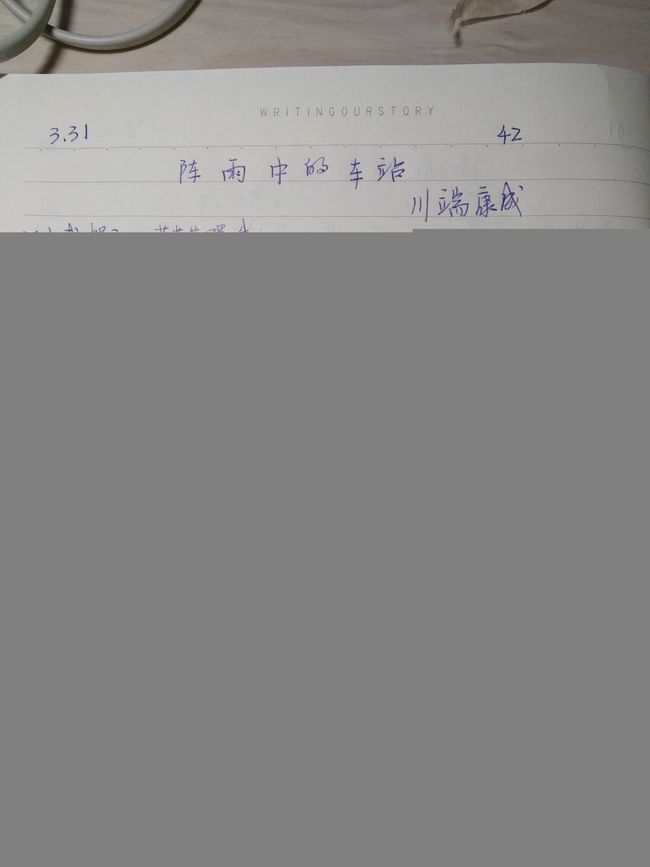 WRITINGOURSTORY
3.31 42
阵雨中的车站
川端康成